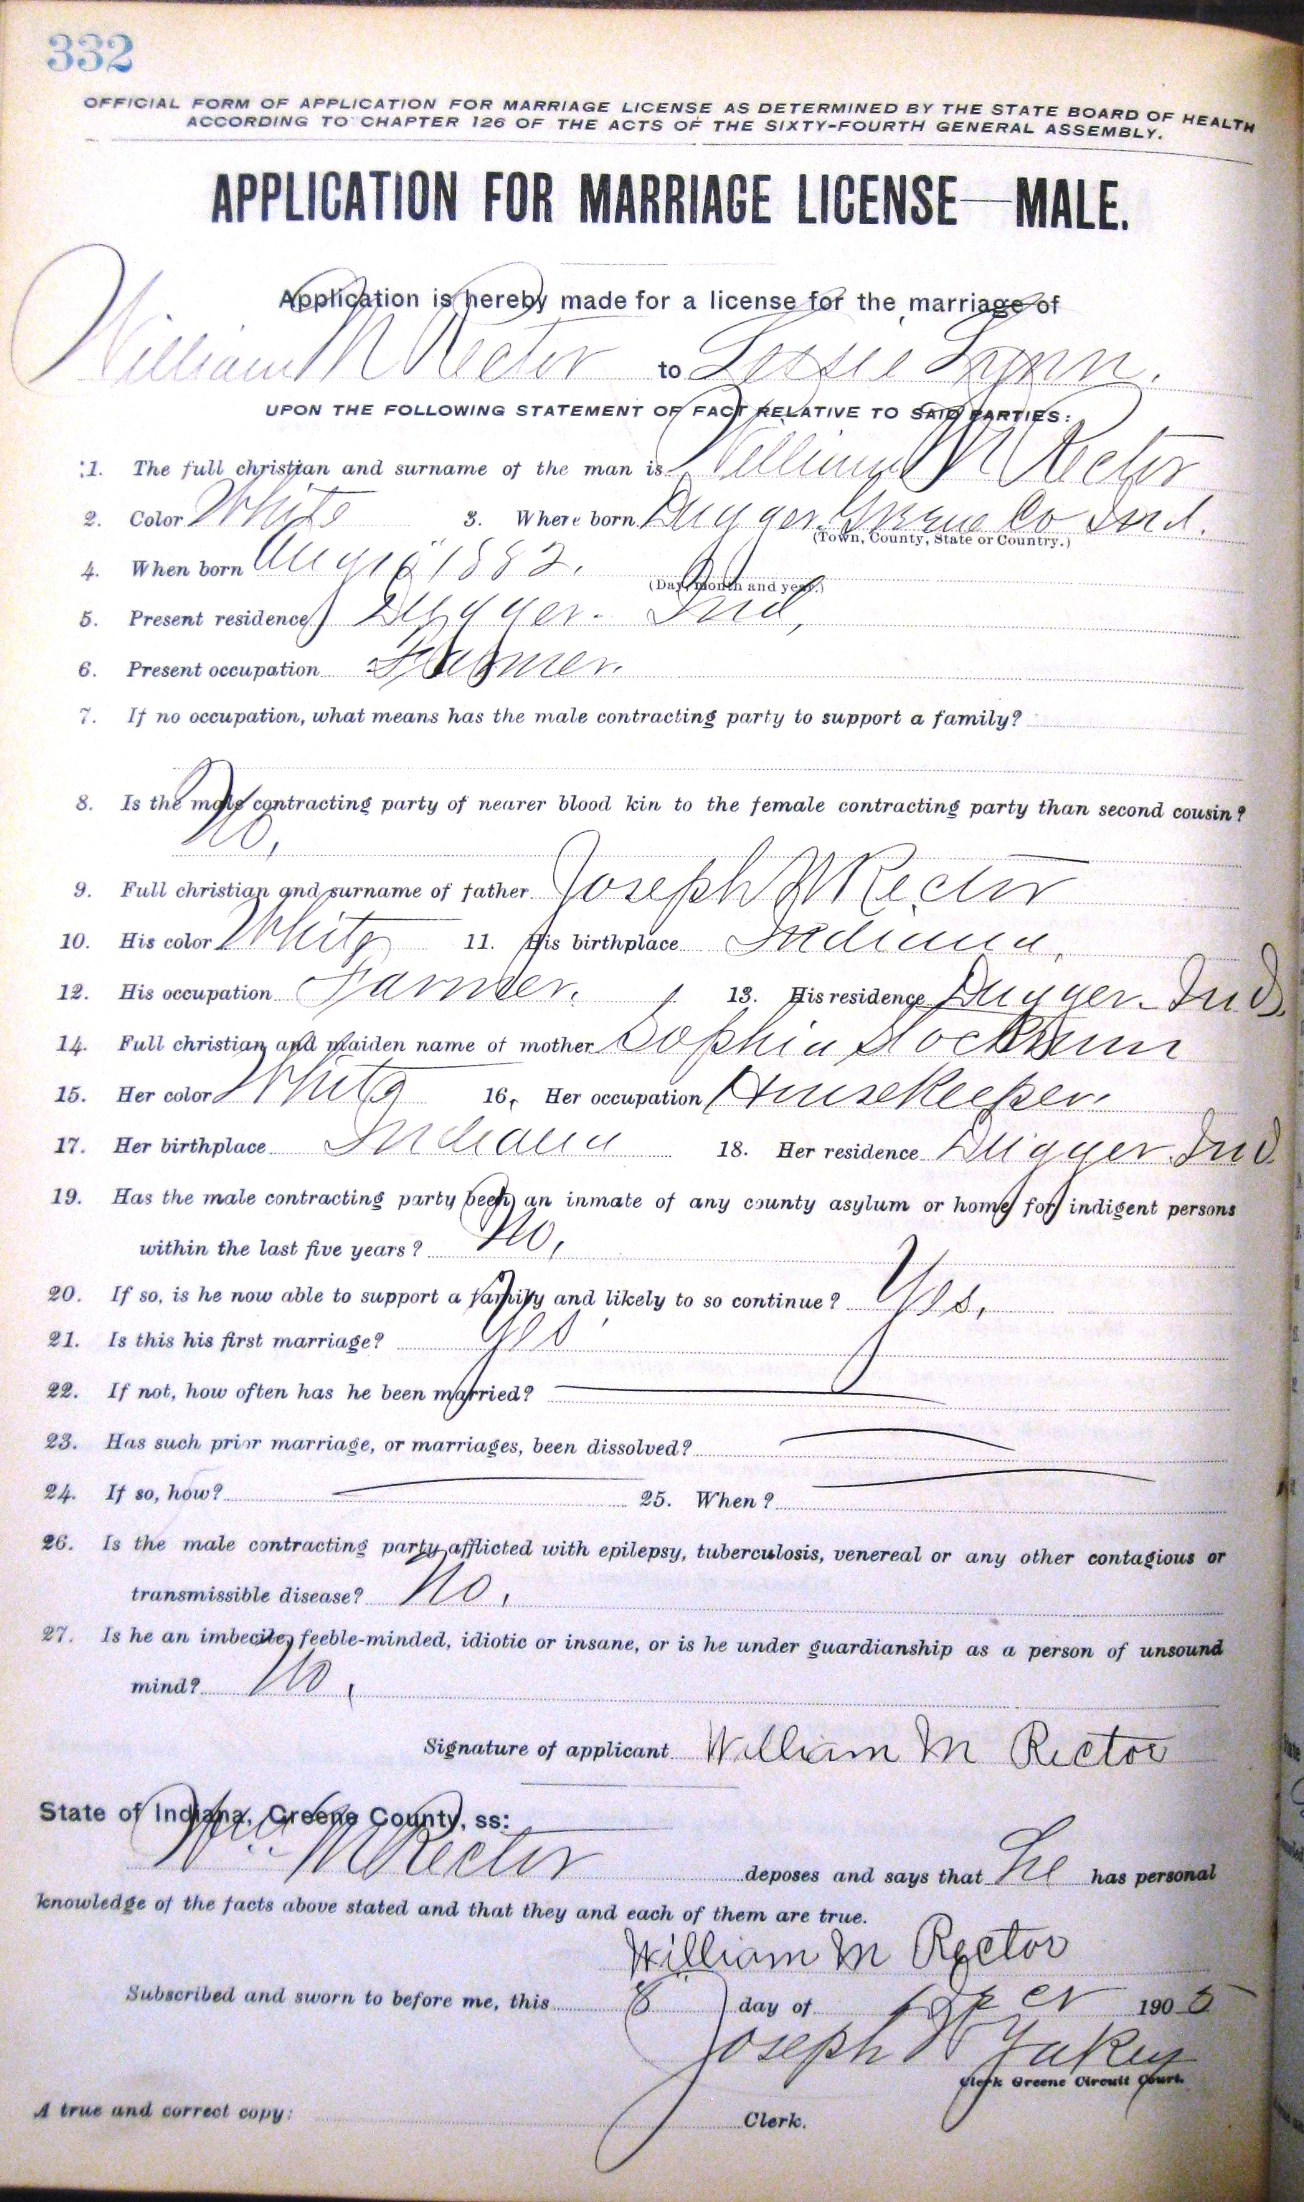 332
OFFICIAL FORM OF APPLICATION FOR MARRIAGE LICENSE AS DETERMINED BY THE STATE BOARD OF HEALTH
ACCORDING TO CHAPTER 126 OF THE ACTS OF THE SIXTY-FOURTH GENERAL ASSEMBLY.
APPLICATION FOR MARRIAGE LICENSE—MALE.
Application is hereby made for a license for the marriage of
William M Rector to Lessie Lynn.
UPON THE FOLLOWING STATEMENT OF FACT RELATIVE TO SAID PARTIES:
1. The full christian and surname of the man is William M Rector
2. Color White 3. Where born Dugger. Greene Co Ind.
(Town, County, State or Country.)
4. When born Aug 1882.
(Day, month and year.)
5. Present residence Dugger. Ind,
6. Present occupation Farmer.
7. If no occupation, what means has the male contracting party to support a family?
8. Is the male contracting party of nearer blood kin to the female contracting party than second cousin?
No,
9. Full christian and surname of father Joseph Rector
10. His color White 11. His birthplace Indiana.
12. His occupation Farmer. 13. His residence Dugger. Ind.
14. Full christian and maiden name of mother Sophia
15. Her color White 16. Her occupation Housekeeper.
17. Her birthplace Indiana 18. Her residence Dugger. Ind
19. Has the male contracting party been an inmate of any county asylum or home for indigent persons
within the last five years? No,
20. If so, is he now able to support a family and likely to so continue? Yes,
21. Is this his first marriage? Yes
22. If not, how often has he been married?
23. Has such prior marriage, or marriages, been dissolved?
24. If so, how? 25. When?
26. Is the male contracting party afflicted with epilepsy, tuberculosis, venereal or any other contagious or
transmissible disease? No,
27. Is he an imbecile, feeble-minded, idiotic or insane, or is he under guardianship as a person of unsound
mind? No,
Signature of applicant William M Rector
State of Indiana, Greene County, ss:
Wm M Rector deposes and says that he has personal
knowledge of the facts above stated and that they and each of them are true.
William M Rector
Subscribed and sworn to before me, this 8 day of 1905
Joseph W Yakey
Clerk Greene Circuit Court.
A true and correct copy: Clerk.